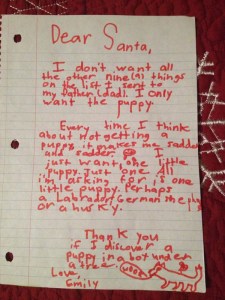 Dear Santa,
I don't want all
the other nine(9) things
on the list I sent to
my father (dad). I only
want the puppy.
Every time I think
about not getting a
puppy it makes me sadder
and sadder. I
just want one little
puppy. Just one. All
I'm asking for is one
little puppy. Perhaps
a Labrador, German
or a husky.
Thank you
if I discover a
puppy in a box under
a tree.
Love,
Emily